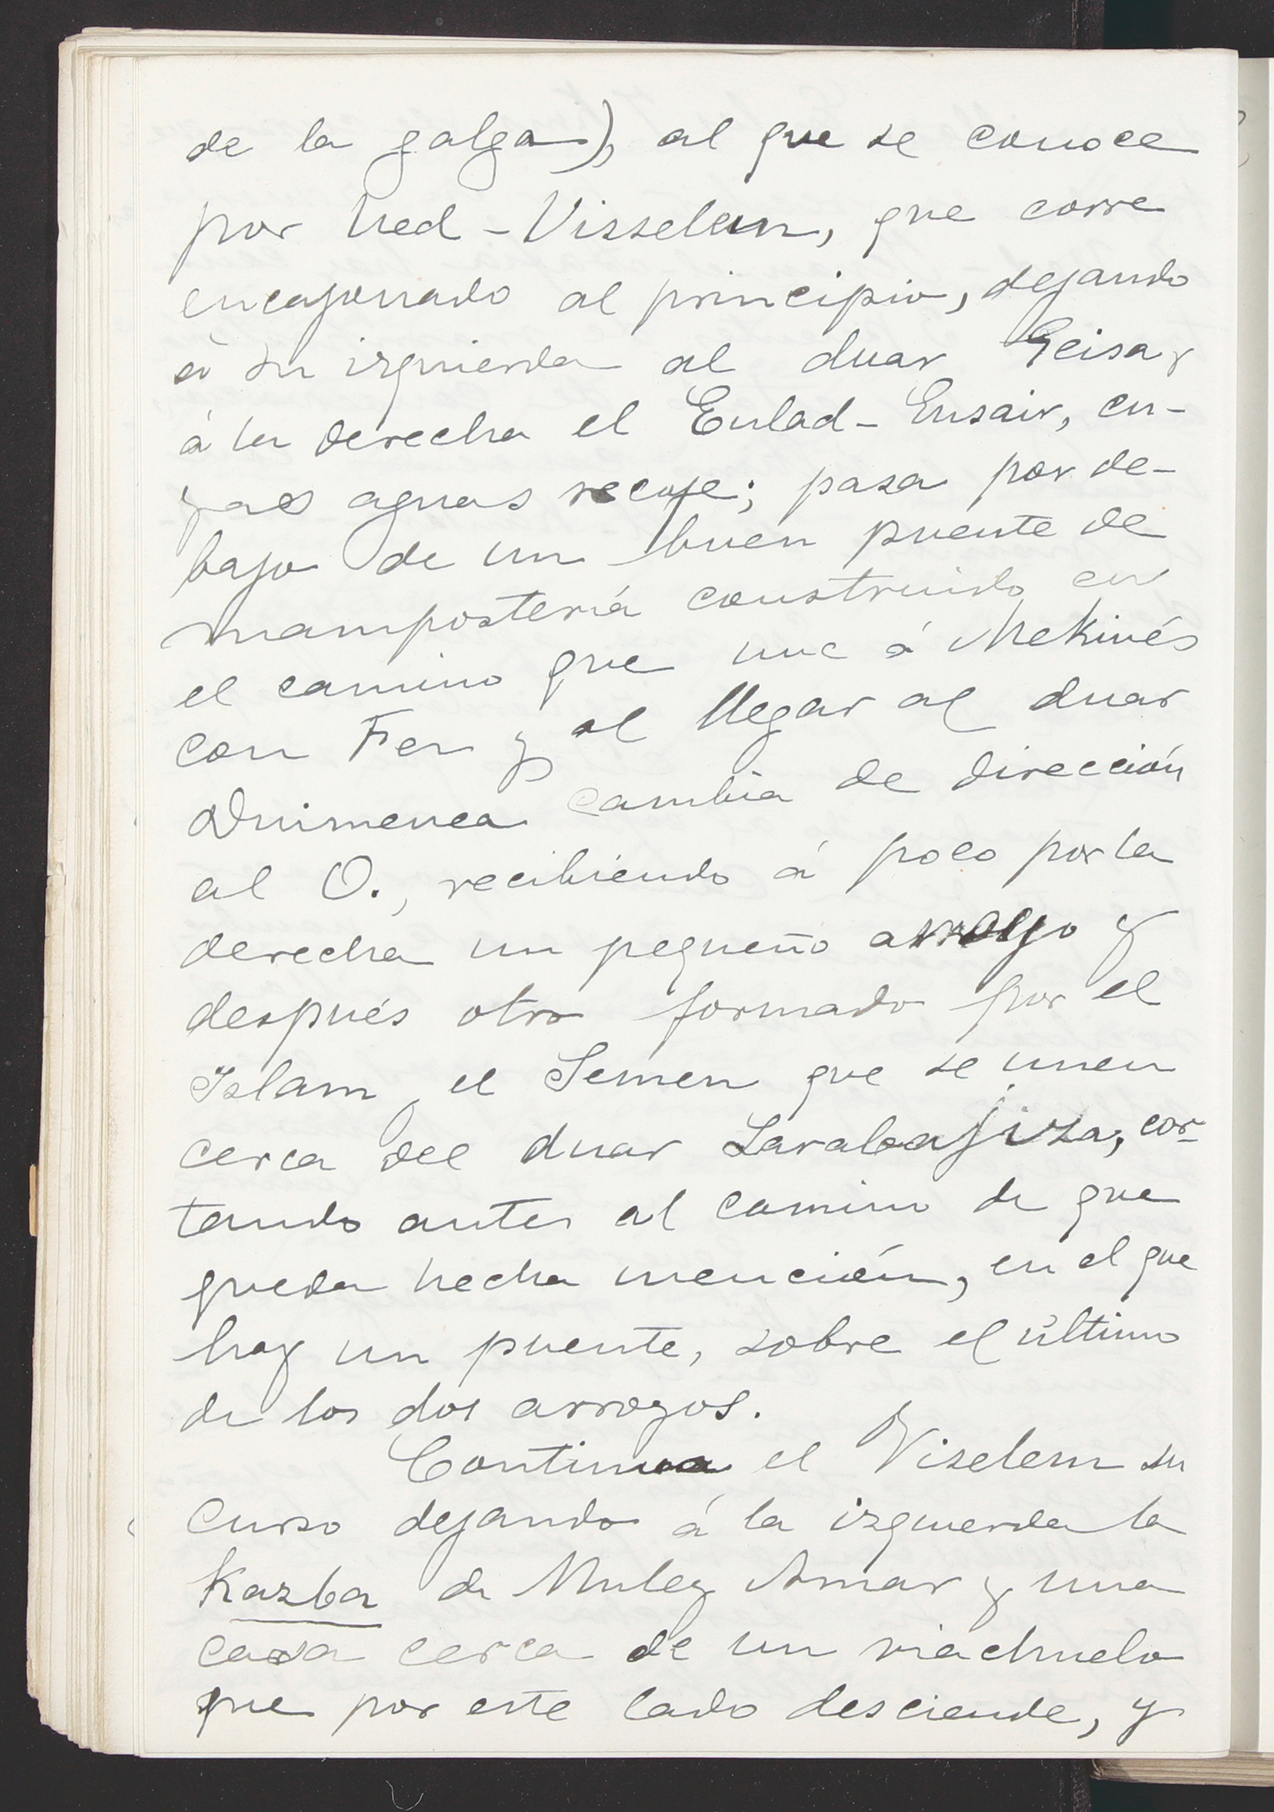 de la galga), al que se conoce
por Ued-Visselem, que corre
encajonado al principio, dejando
á su izquierda al duar Geisa y
á la derecha el Eulad-Ensair, cu-
yas aguas recoje; pasa por de-
bajo de un buen puente de
mampostería construido en
el camino que une á Mekinés
con Fez y al llegar al duar
Duimenea cambia de dirección
al O., recibiendo á poco por la
derecha un pequeño arroyo y
después otro formado por el
Islam y el Semen que se unen
cerca del duar Larabajiza, cor-
tando antes al camino de que
queda hecha mención, en el que
hay un puente, sobre el último
de los dos arroyos.
Continua el Viselem su
curso dejando á la izquierda la
Kazba de Muley Amar y una
casa cerca de un riachuelo
que por este lado desciende, y